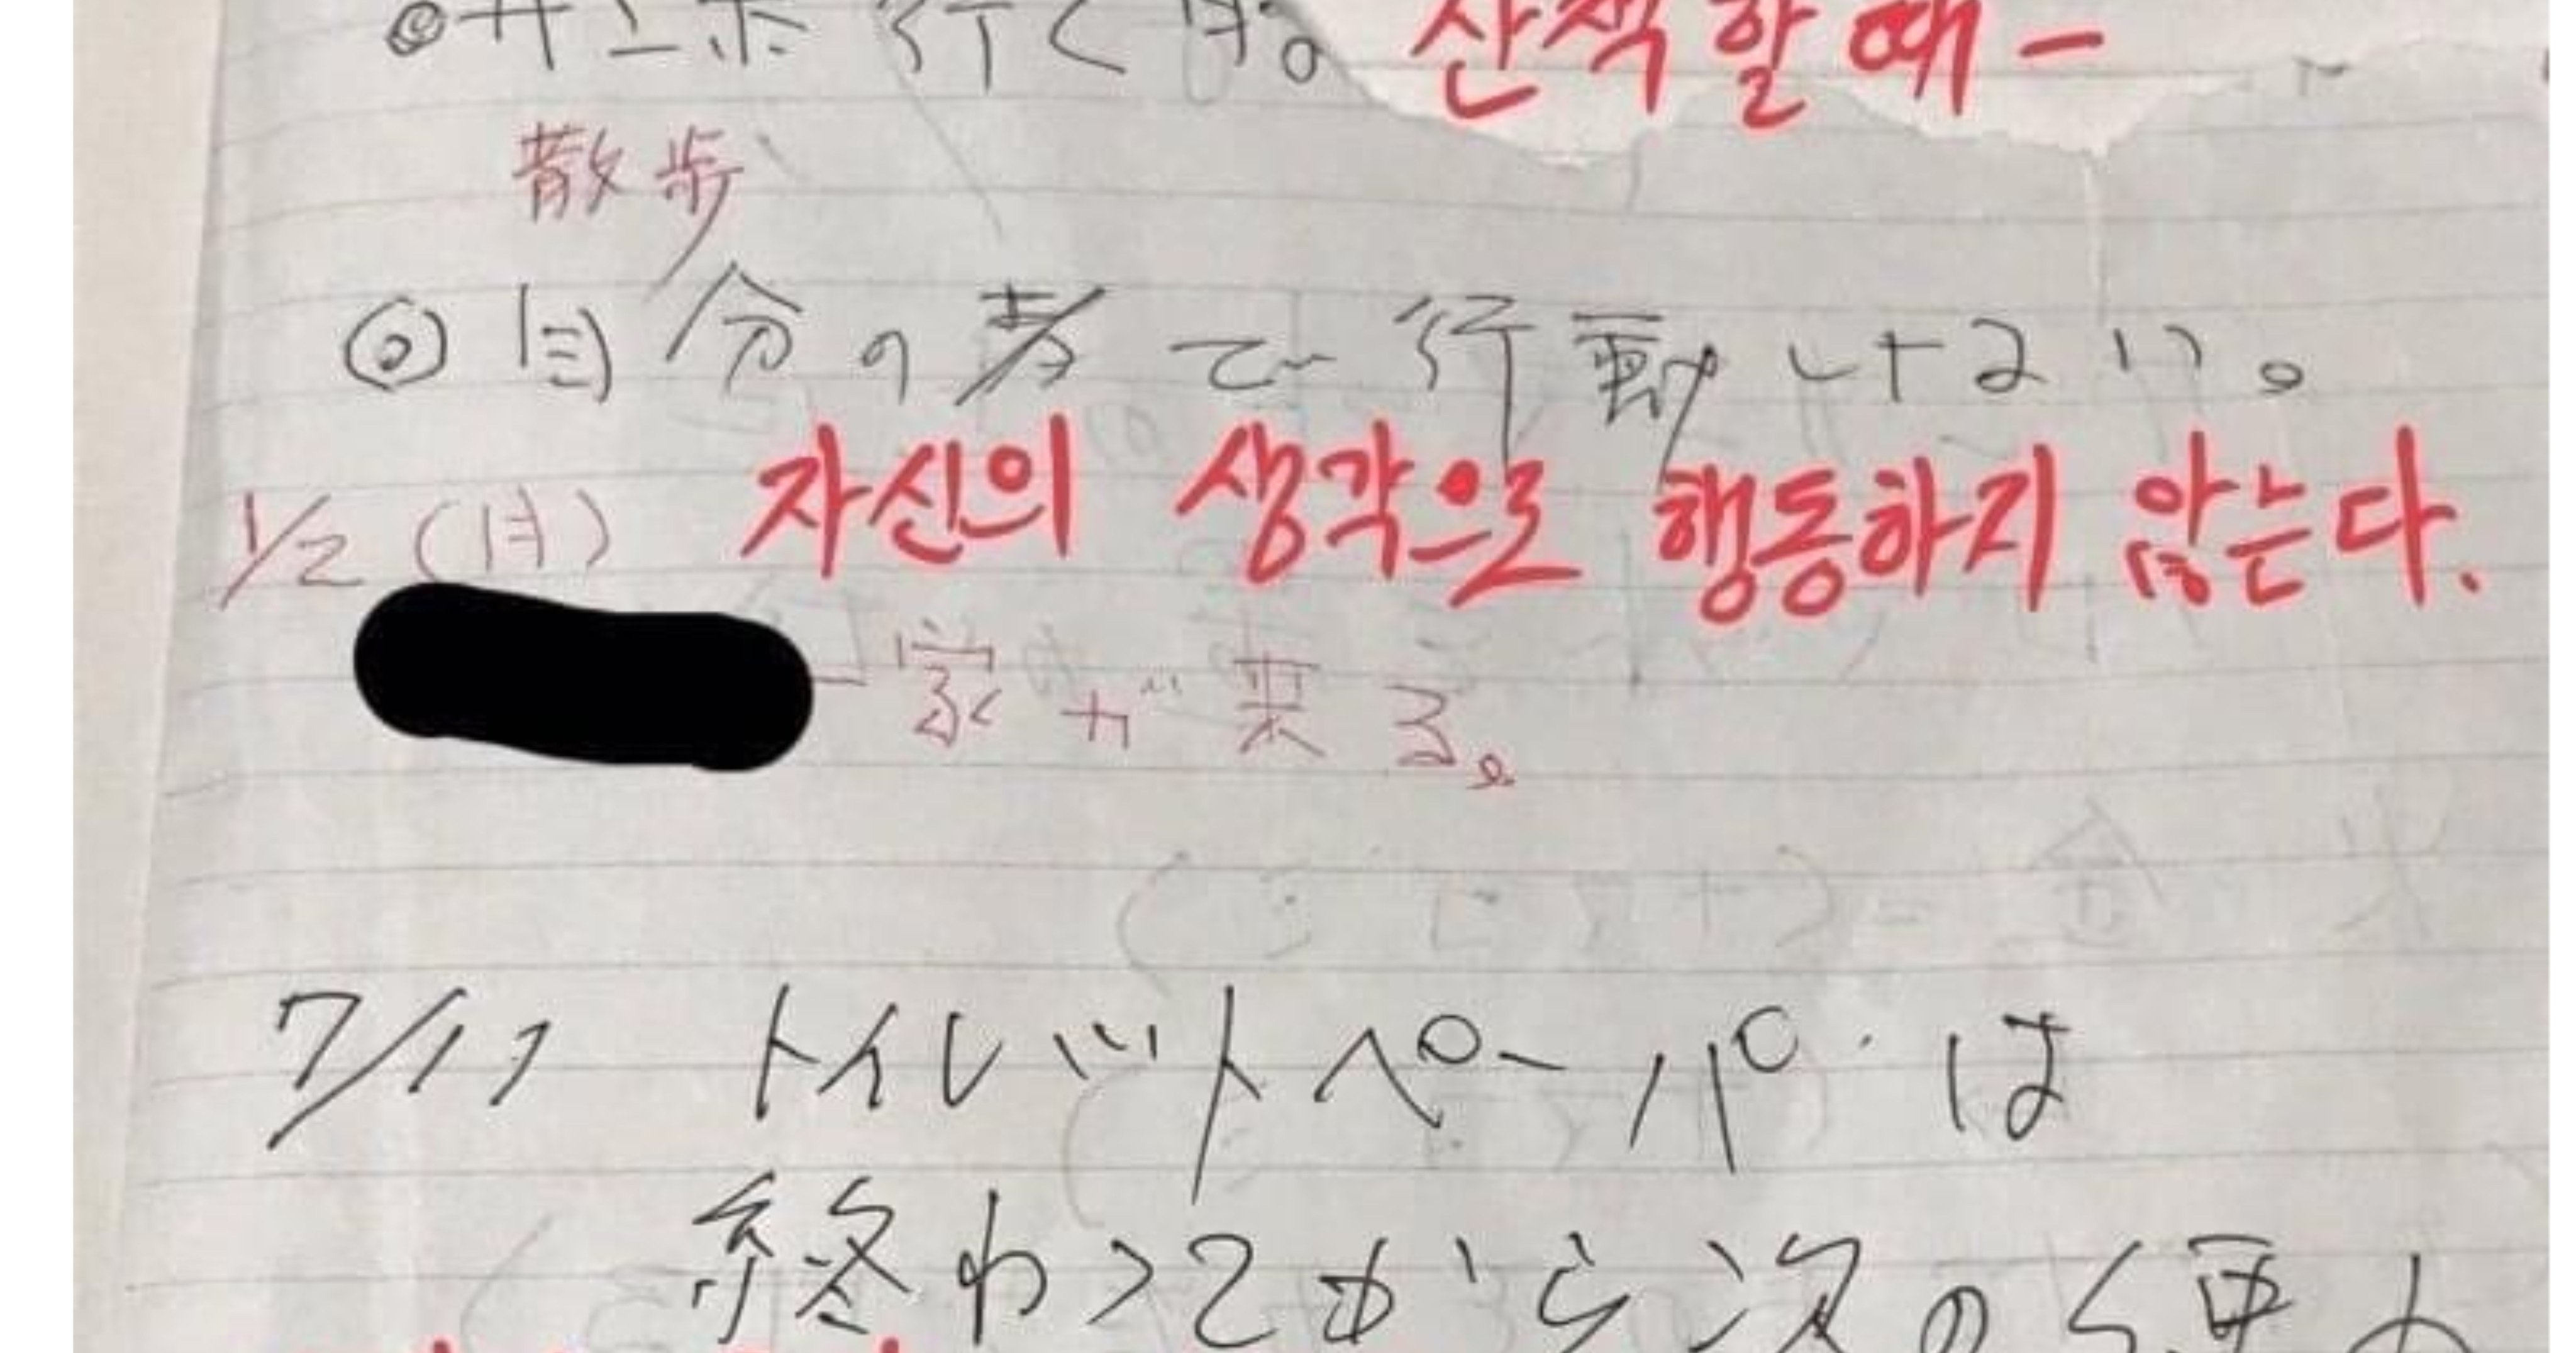 ◎サンポ行く時。 산책할 때-
散歩
◎自分の考で行動しない。
자신의 생각으로 행동하지 않는다.
1/2(月)
一家が来る。
7/11 トイレットペーパーは
終わってから次の使